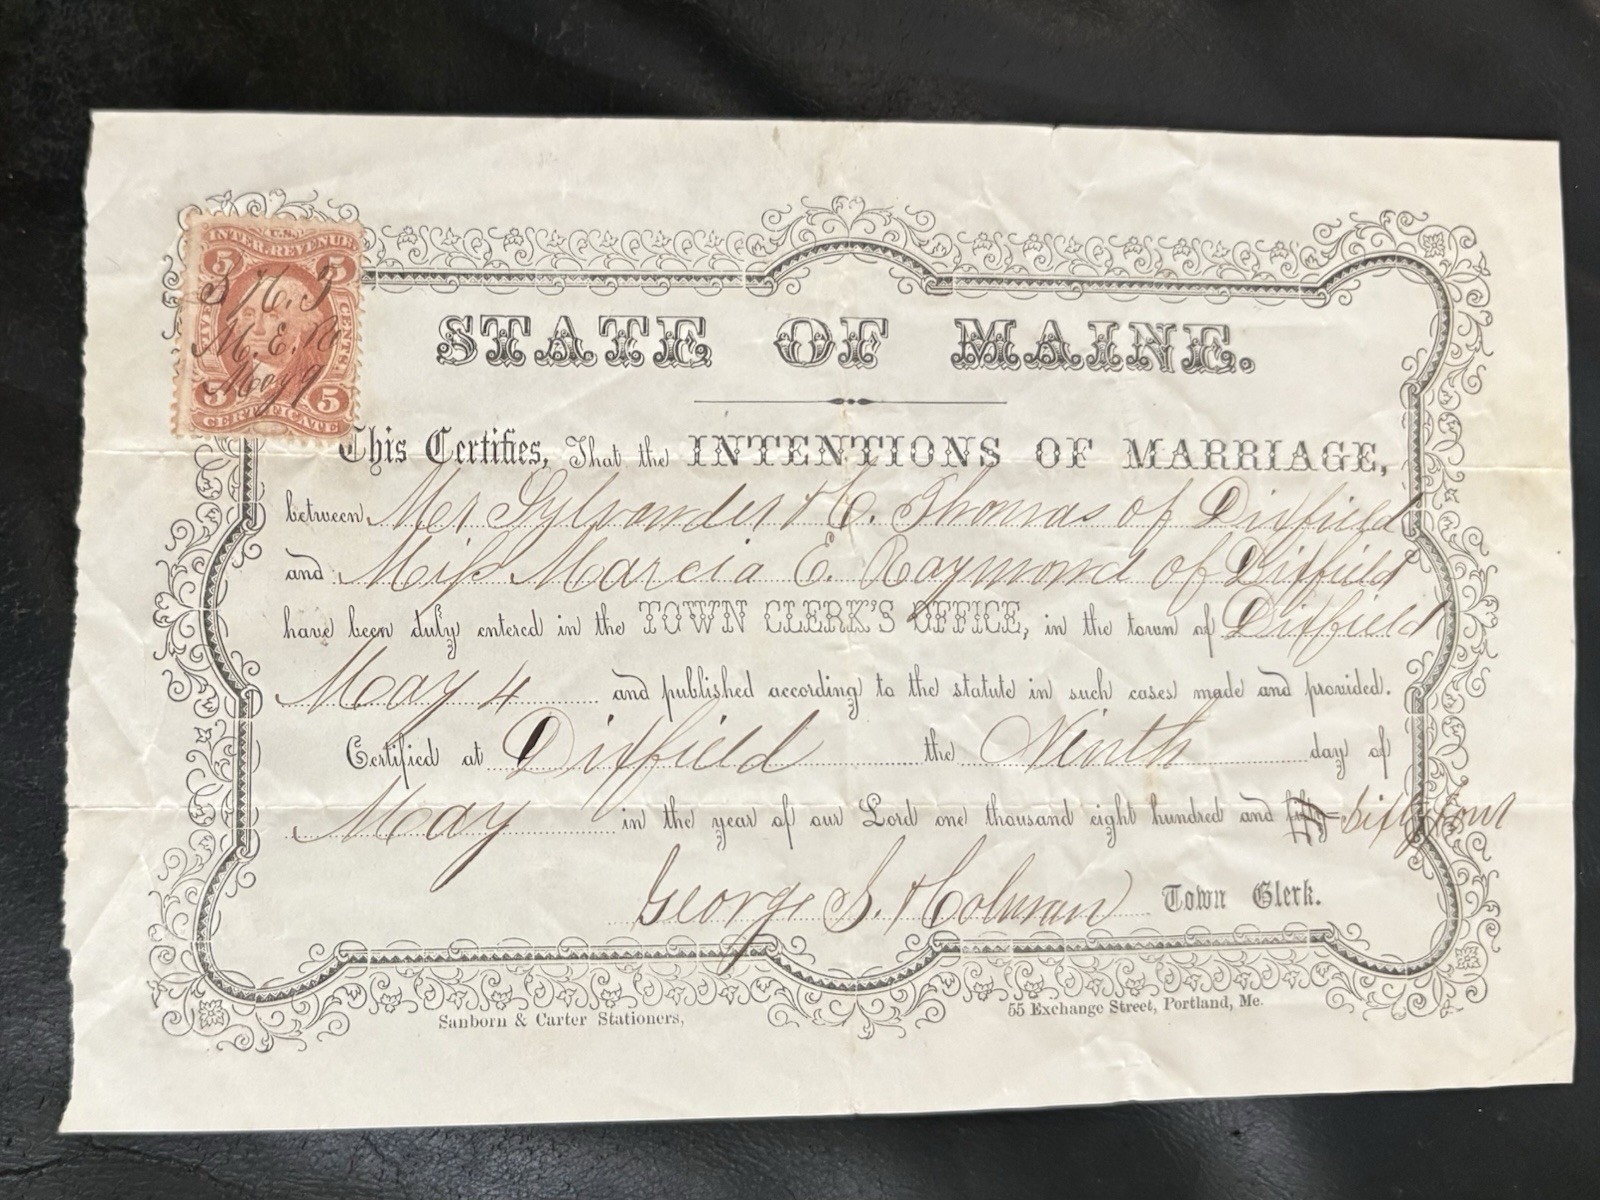 U.S.
INTER. REVENUE
5 5
FIVE CENTS.
S H. T
M. E. R
May 9
5 5
CERTIFICATE
STATE OF MAINE.
This Certifies, That the INTENTIONS OF MARRIAGE,
between Mr Sylvander H C. Thomas of Dixfield
and Miss Marcia E. Raymond of Dixfield
have been duly entered in the TOWN CLERK'S OFFICE, in the town of Dixfield
May 4 and published according to the statute in such cases made and provided.
Certified at Dixfield the Ninth day of
May in the year of our Lord one thousand eight hundred and sixty four
George S. Holman Town Clerk.
Sanborn & Carter Stationers, 55 Exchange Street, Portland, Me.